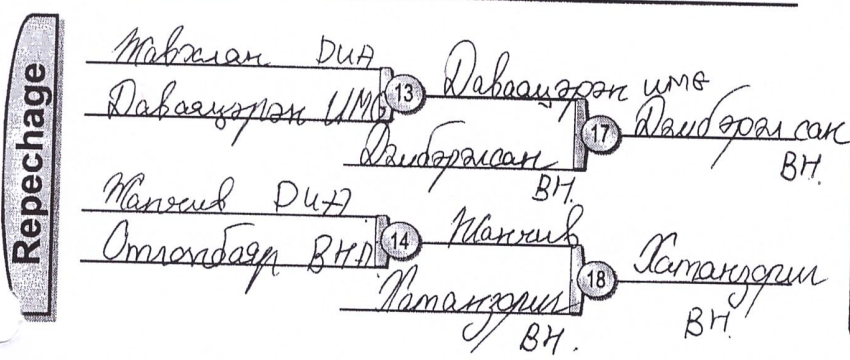 Repechage
Жавхлан ДИА
Даваацэрэн ИМG
13
Даваацэрэн ИМG
Дэмбэрэлсан
ВН.
17
Дэмбэрэлсан
ВН.
Жанчив ДИА
Отгонбаяр ВНА
14
Жанчив
Хатанзориг
ВН.
18
Хатанзориг
ВН.